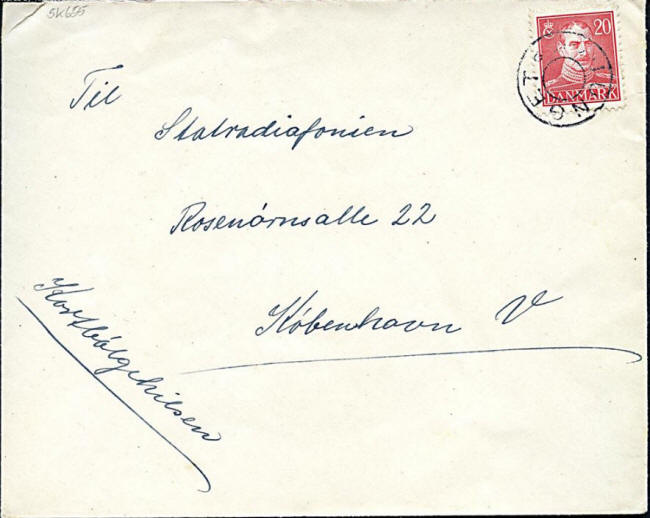 sk695
20
DANMARK
Til
Statsradiofonien
Rosenörnsalle 22
København V
Kortbølgehilsen